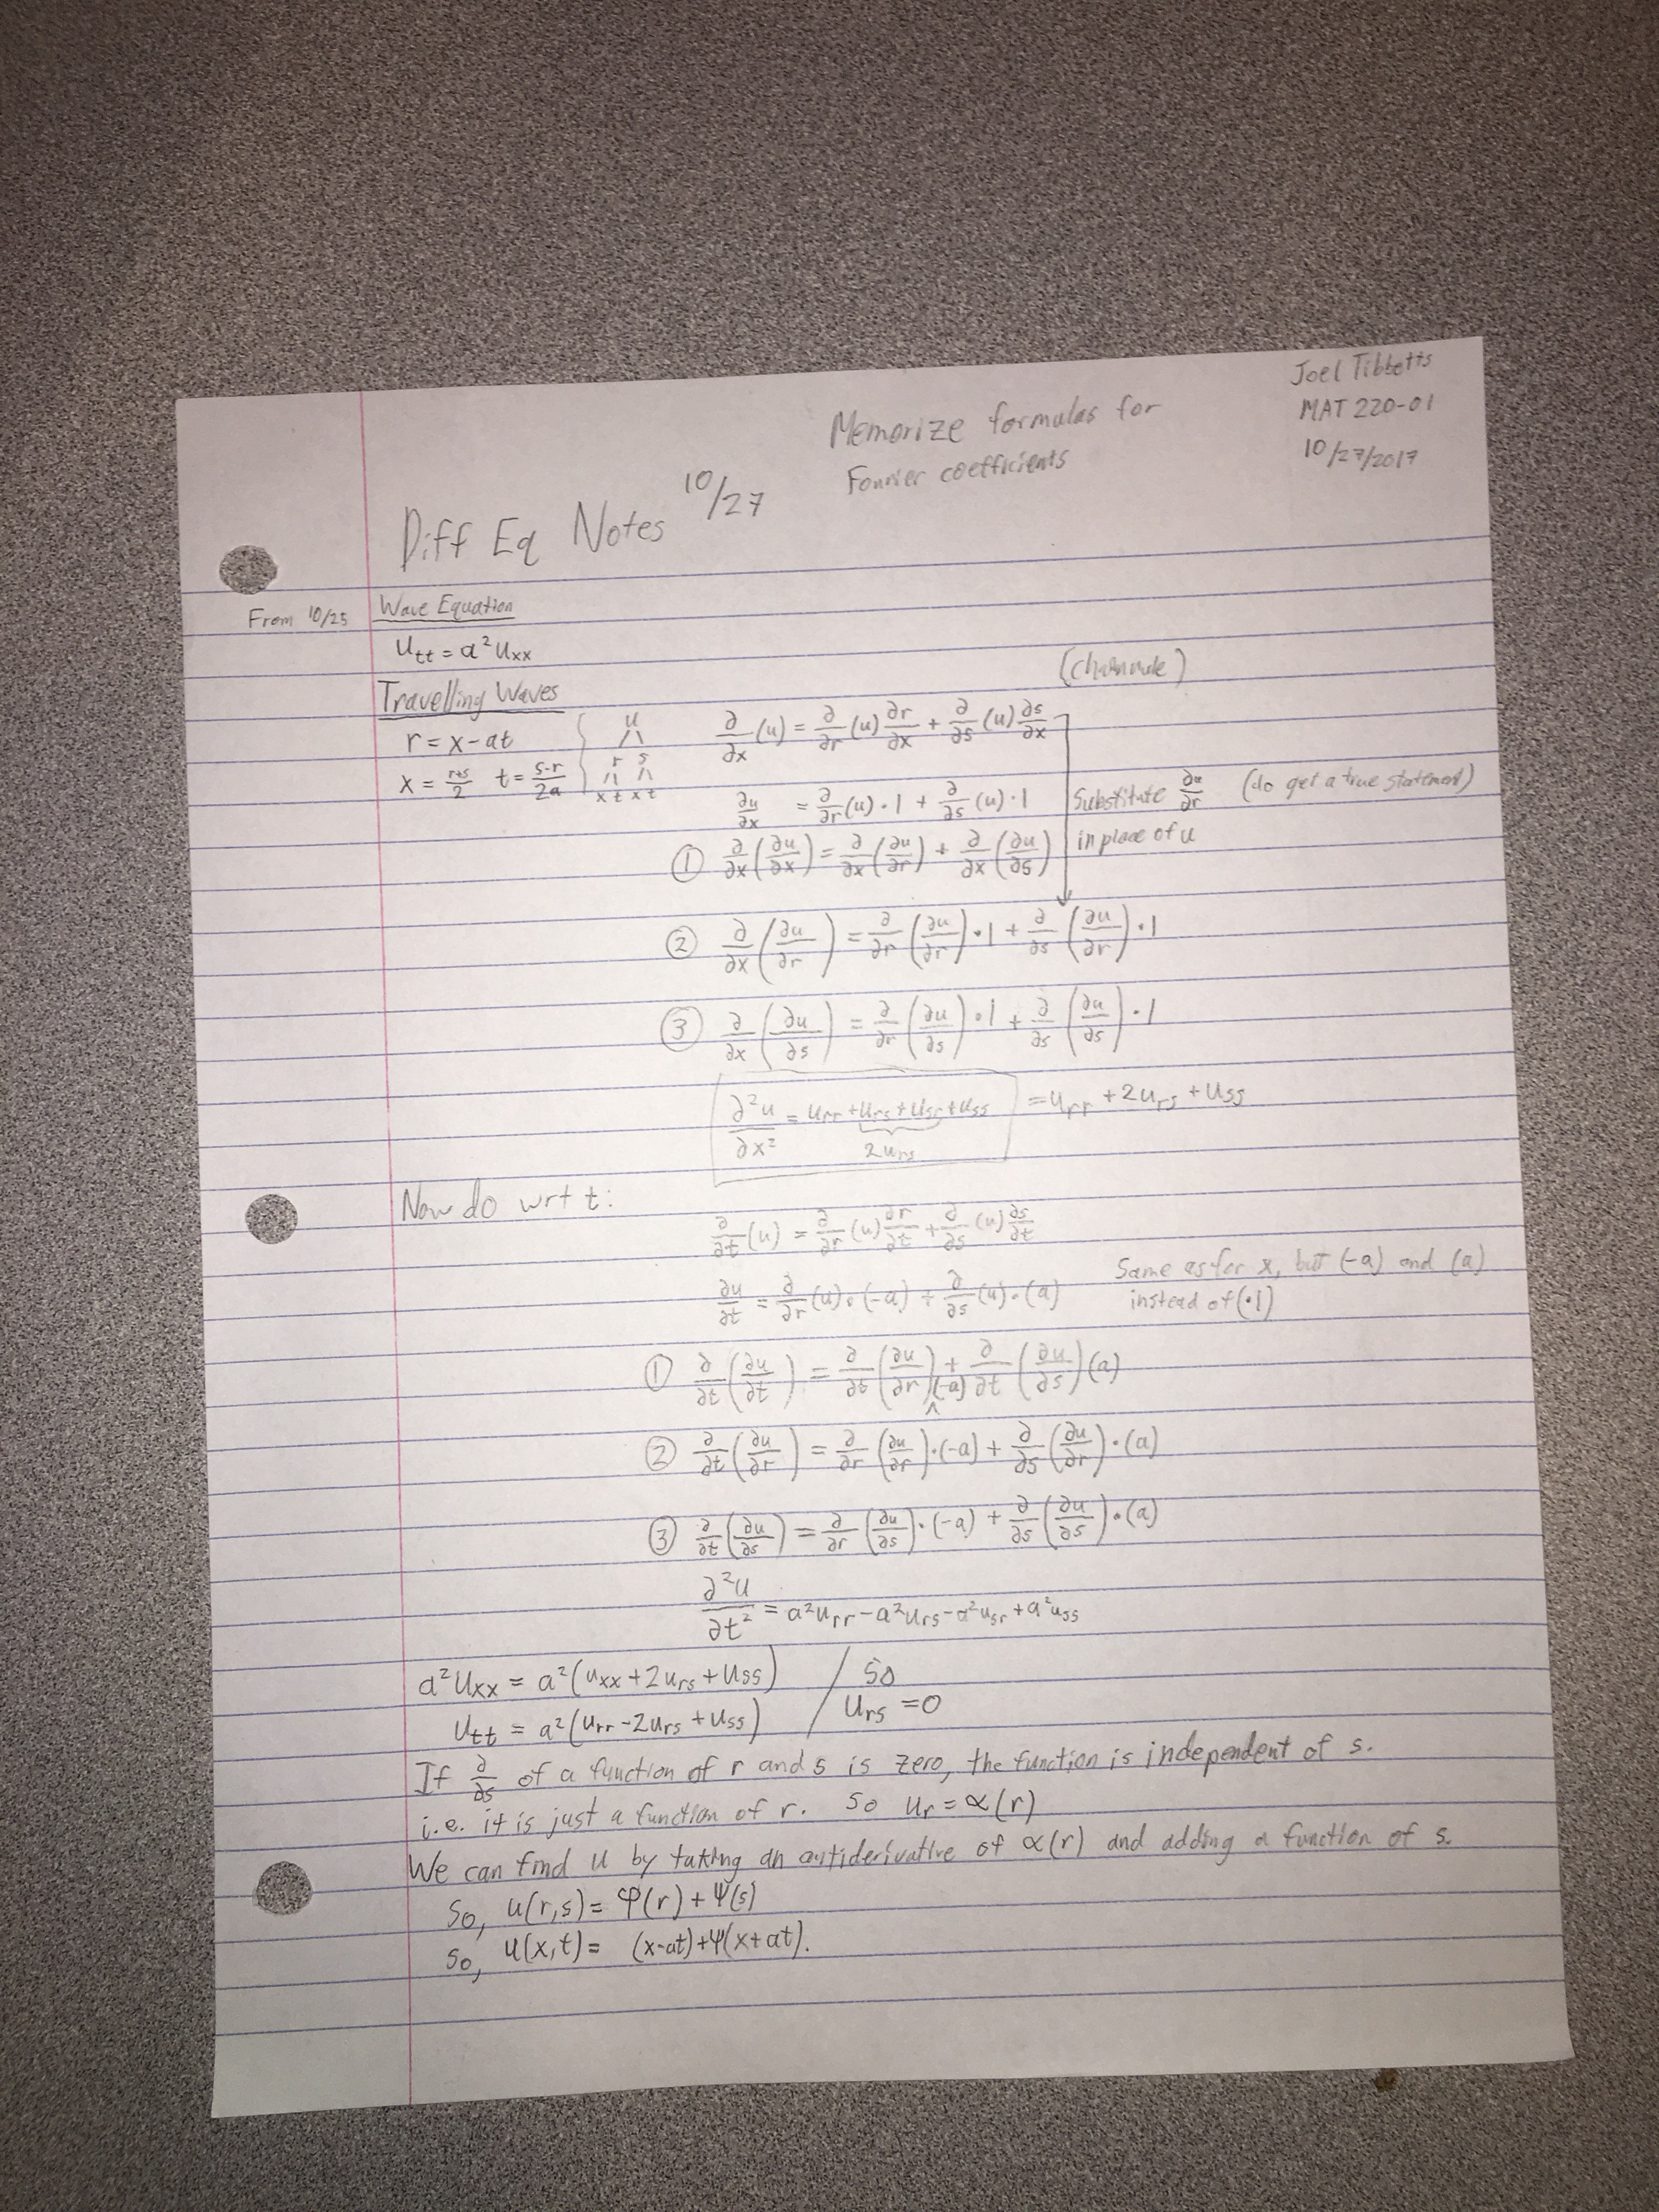 Joel Tibbetts
MAT 220-01
10/27/2017
Memorize formulas for
Fourier coefficients
Diff Eq Notes 10/27
From 10/25
Wave Equation
u_tt = a²u_xx
Travelling Waves
r = x-at
x = (r+s)/2 t = (s-r)/2a
u
r s
x t x t
(chain rule)
∂/∂x (u) = ∂/∂r (u) ∂r/∂x + ∂/∂s (u) ∂s/∂x
∂u/∂x = ∂/∂r (u)·1 + ∂/∂s (u)·1
Substitute ∂u/∂r (to get a true statement)
in place of u
① ∂/∂x (∂u/∂x) = ∂/∂x (∂u/∂r) + ∂/∂x (∂u/∂s)
② ∂/∂x (∂u/∂r) = ∂/∂r (∂u/∂r)·1 + ∂/∂s (∂u/∂r)·1
③ ∂/∂x (∂u/∂s) = ∂/∂r (∂u/∂s)·1 + ∂/∂s (∂u/∂s)·1
∂²u/∂x² = u_rr + u_rs + u_sr + u_ss = u_rr + 2u_rs + u_ss
2u_rs
Now do wrt t:
∂/∂t (u) = ∂/∂r (u) ∂r/∂t + ∂/∂s (u) ∂s/∂t
∂u/∂t = ∂/∂r (u)·(-a) + ∂/∂s (u)·(a)
Same as for x, but (-a) and (a)
instead of (·1)
① ∂/∂t (∂u/∂t) = ∂/∂t (∂u/∂r)(-a) + ∂/∂t (∂u/∂s)(a)
② ∂/∂t (∂u/∂r) = ∂/∂r (∂u/∂r)·(-a) + ∂/∂s (∂u/∂r)·(a)
③ ∂/∂t (∂u/∂s) = ∂/∂r (∂u/∂s)·(-a) + ∂/∂s (∂u/∂s)·(a)
∂²u/∂t² = a²u_rr - a²u_rs - a²u_sr + a²u_ss
a²u_xx = a²(u_xx + 2u_rs + u_ss) / So
u_tt = a²(u_rr - 2u_rs + u_ss) / u_rs = 0
If ∂/∂s of a function of r and s is zero, the function is independent of s.
i.e. it is just a function of r. So u_r = α(r)
We can find u by taking an antiderivative of α(r) and adding a function of s.
So, u(r,s) = φ(r) + ψ(s)
So, u(x,t) = (x-at)+ψ(x+at).